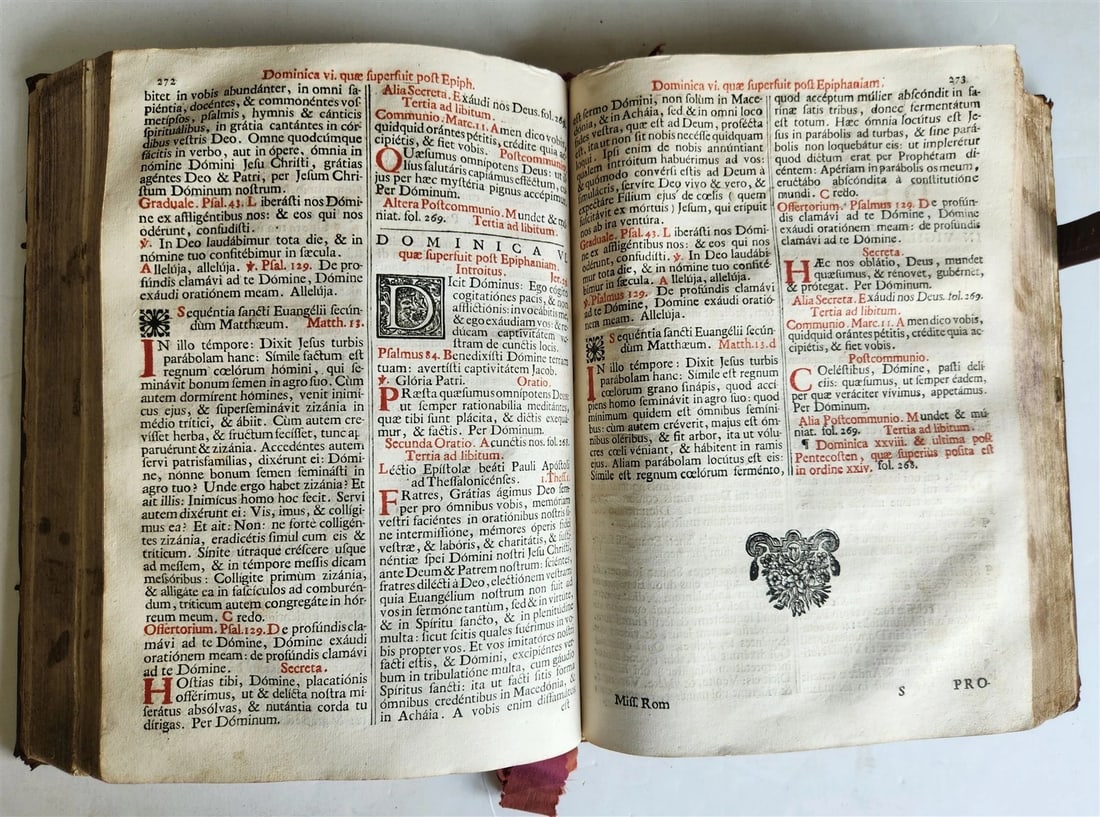 272
Dominica vi. quæ superfuit post Epiph.
bitet in vobis abundánter, in omni sa-
piéntia, docéntes, & commonéntes vos-
metipsos, psalmis, hymnis & cánticis
spirituálibus, in grátia cantántes in cór-
dibus vestris Deo. Omne quodcúmque
fácitis in verbo, aut in ópere, ómnia in
nómine Dómini Jesu Christi, grátias
agéntes Deo & Patri, per Jesum Chri-
stum Dóminum nostrum.
Graduale. Psal. 43. Liberásti nos Dómi-
ne ex affligéntibus nos: & eos qui nos
odérunt, confudísti.
℣. In Deo laudábimur tota die, & in
nómine tuo confitébimur in sæcula.
Allelúja, allelúja. ℣. Psal. 129. De pro-
fúndis clamávi ad te Dómine, Dómine
exáudi oratiónem meam. Allelúja.
Sequéntia sancti Euangélii secún-
dùm Matthæum. Matth. 13.
IN illo témpore: Dixit Jesus turbis
parábolam hanc: Símile factum est
regnum cœlórum hómini, qui se-
minávit bonum semen in agro suo. Cùm
autem dormírent hómines, venit inimí-
cus ejus, & superseminávit zizánia in
médio trítici, & ábiit. Cùm autem cre-
vísset herba, & fructum fecísset, tunc ap-
paruérunt & zizánia. Accedéntes autem
servi patrisfamílias, dixérunt ei: Dómi-
ne, nonne bonum semen seminásti in
agro tuo? Unde ergo habet zizánia? Et
ait illis: Inimícus homo hoc fecit. Servi
autem dixérunt ei: Vis, imus, & collígi-
mus ea? Et ait: Non: ne fortè colligén-
tes zizánia, eradicétis simul cum eis &
tríticum. Sínite útraque créscere usque
ad messem, & in témpore messis dicam
messóribus: Collígite primum zizánia,
& alligáte ea in fascículos ad comburén-
dum, tríticum autem congregáte in hór-
reum meum. Credo.
Offertorium. Psal. 129. De profúndis cla-
mávi ad te Dómine, Dómine exáudi
oratiónem meam: de profúndis clamávi
ad te Dómine. Secreta.
HOstias tibi, Dómine, placatiónis
offérimus, ut & delícta nostra mi-
serátus absólvas, & nutántia corda tu
dírigas. Per Dóminum.
Alia Secreta. Exáudi nos Deus. fol. 269.
Tertia ad libitum.
Communio. Marc. 11. Amen dico vobis,
quidquid orántes pétitis, crédite quia ac-
cipiétis, & fiet vobis. Postcommunio
QUæsumus omnípotens Deus: ut il-
líus salutáris capiámus efféctum, cu-
jus per hæc mystéria pignus accépimus.
Per Dóminum.
Altera Postcommunio. Mundet & mú-
niat. fol. 269. Tertia ad libitum.
DOMINICA VI.
quæ superfuit post Epiphaniam.
Introitus. Jer. 29
DIcit Dóminus: Ego cógito
cogitatiónes pacis, & non
afflictiónis: invocábitis me,
& ego exáudiam vos: & re-
dúcam captivitátem ve-
stram de cunctis locis.
Psalmus 84. Benedixísti Dómine terram
tuam: avertísti captivitátem Jacob.
℣. Glória Patri. Oratio.
PRæsta quæsumus omnípotens Deus:
ut semper rationabília meditántes,
quæ tibi sunt plácita, & dictis exequá-
mur, & factis. Per Dóminum.
Secunda Oratio. A cunctis nos. fol. 268.
Tertia ad libitum.
Léctio Epístolæ beáti Pauli Apóstoli
ad Thessalonicénses. 1. Thess. 1.
FRatres, Grátias ágimus Deo sem-
per pro ómnibus vobis, memóriam
vestri faciéntes in oratiónibus nostris si-
ne intermissióne, mémores óperis fídei
vestræ, & labóris, & charitátis, & susti-
néntiæ spei Dómini nostri Jesu Christi,
ante Deum & Patrem nostrum: sciéntes,
fratres dilécti à Deo, electiónem vestram:
quia Euangélium nostrum non fuit ad
vos in sermóne tantùm, sed & in virtúte,
& in Spíritu sancto, & in plenitúdine
multa: sicut scitis quales fuérimus in vo-
bis propter vos. Et vos imitatóres nostri
facti estis, & Dómini, excipiéntes ver-
bum in tribulatióne multa, cum gáudio
Spíritus sancti: ita ut facti sitis forma
ómnibus credéntibus in Macedónia, &
in Acháia. A vobis enim diffamátus
est
Dominica vi. quæ superfuit post Epiphaniam.
273
est sermo Dómini, non solùm in Mace-
dónia, & in Acháia, sed & in omni loco
fides vestra, quæ est ad Deum, profécta
est, ita ut non sit nobis necésse quidquam
loqui. Ipsi enim de nobis annúntiant
qualem intróitum habuérimus ad vos:
& quómodo convérsi estis ad Deum à
simulácris, servíre Deo vivo & vero, &
expectáre Fílium ejus de cœlis (quem
suscitávit ex mórtuis) Jesum, qui erípuit
nos ab ira ventúra.
Graduale. Psal. 43. Liberásti nos Dómi-
ne ex affligéntibus nos: & eos qui nos
odérunt, confudísti. ℣. In Deo laudábi-
mur tota die, & in nómine tuo confité-
bimur in sæcula. Allelúja, allelúja.
℣. Psalmus 129. De profúndis clamávi
ad te Dómine, Dómine exáudi oratió-
nem meam. Allelúja.
Sequéntia sancti Euangélii secún-
dum Matthæum. Matth. 13. d
IN illo témpore: Dixit Jesus turbis
parábolam hanc: Símile est regnum
cœlórum grano sinápis, quod accí-
piens homo seminávit in agro suo: quod
mínimum quidem est ómnibus semíni-
bus: cùm autem créverit, majus est óm-
nibus oléribus, & fit arbor, ita ut vólu-
cres cœli véniant, & hábitent in ramis
ejus. Aliam parábolam locútus est eis:
Símile est regnum cœlórum ferménto,
quod accéptum múlier abscóndit in fa-
rínæ satis tribus, donec fermentátum
est totum. Hæc ómnia locútus est Je-
sus in parábolis ad turbas, & sine pará-
bolis non loquebátur eis: ut implerétur
quod dictum erat per Prophétam di-
céntem: Apériam in parábolis os meum,
eructábo abscóndita à constitutióne
mundi. Credo.
Offertorium. Psalmus 129. De profún-
dis clamávi ad te Dómine, Dómine
exáudi oratiónem meam: de profúndis
clamávi ad te Dómine.
Secreta.
HÆc nos oblátio, Deus, mundet
quæsumus, & rénovet, gubérnet,
& prótegat. Per Dóminum.
Alia Secreta. Exáudi nos Deus. fol. 269.
Tertia ad libitum.
Communio. Marc. 11. Amen dico vobis,
quidquid orántes pétitis, crédite quia ac-
cipiétis, & fiet vobis.
Postcommunio.
COEléstibus, Dómine, pasti delí-
ciis: quæsumus, ut semper éadem,
per quæ veráciter vívimus, appetámus.
Per Dóminum.
Alia Postcommunio. Mundet & mú-
niat. fol. 269. Tertia ad libitum.
¶ Dominica xxviii. & ultima post
Pentecosten, quæ superiùs posita est
in ordine xxiv. fol. 268.
Miss. Rom
S
PRO-